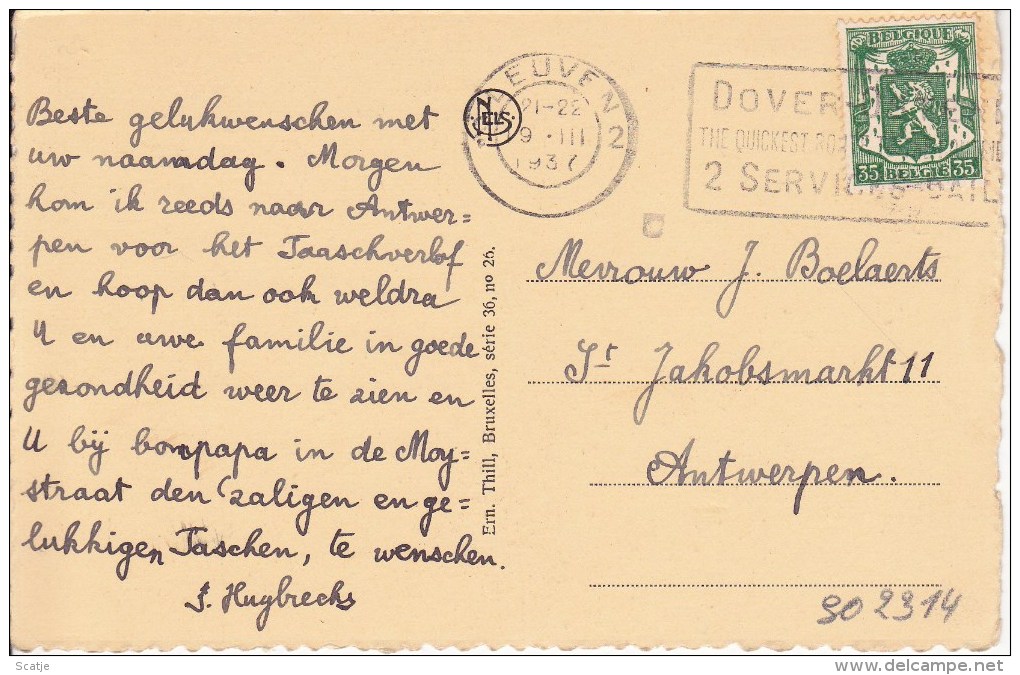 Beste gelukwenschen met
uw naamdag. Morgen
kom ik reeds naar Antwer=
pen voor het Paaschverlof
en hoop dan ook weldra
U en uwe familie in goede
gezondheid weer te zien en
U bij bompapa in de Moy=
straat den zaligen en ge=
lukkigen Paschen, te wenschen.
J. Huybrechs
Ern. Thill, Bruxelles, série 36, no 26.
NELS
LEUVEN
21-22
9 · III
1937
2
DOVER
THE QUICKEST
2 SERVICES
BELGIQUE
35 BELGIE 35
Mevrouw J. Boelaerts
St Jakobsmarkt 11
Antwerpen.
SO 2314
Scatje
www.delcampe.net